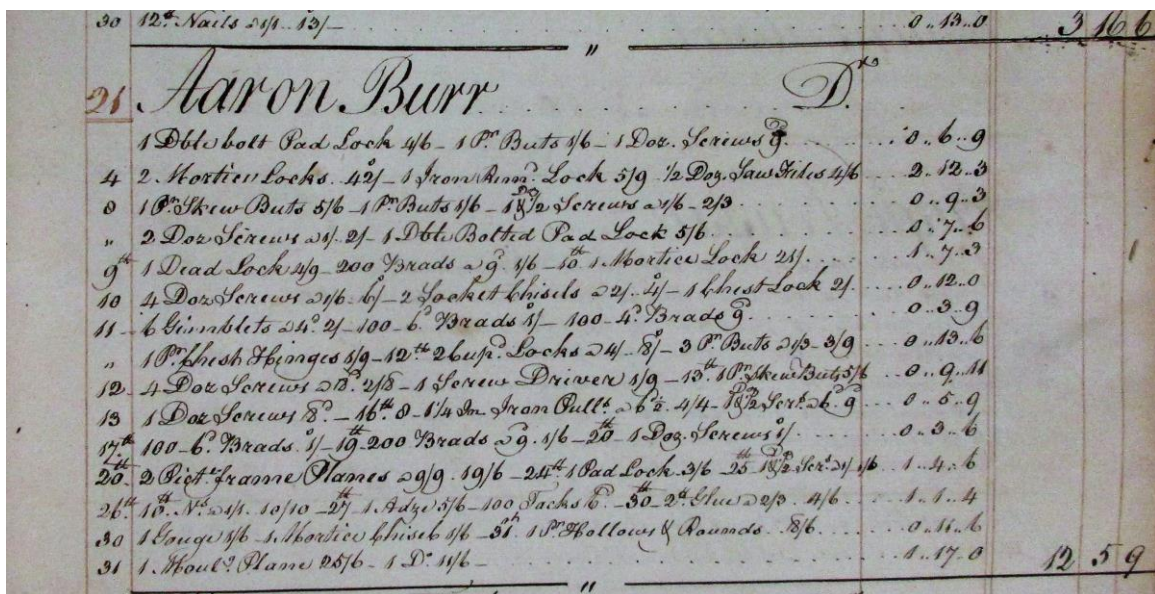 30 12d Nails a 1/1 13/— 0..13..0 3 16 6
"
21 Aaron Burr Dr
1 Dble bolt Pad Lock 4/6 – 1 Pr. Buts 1/6 – 1 Doz. Screws 9d 0..6..9
4 2 Mortice Locks 42/– 1 Iron Rimd. Lock 5/9 ½ Doz. Saw Files 4/6 2..12..3
8 1 Pr. Skew Buts 5/6 – 1 Pr. Buts 1/6 – 1 & ½ Screws a 1/6 – 2/3 0..9..3
" 2 Doz Screws a 1/ 2/– 1 Dble Bolted Pad Lock 5/6 0..7..6
9th 1 Dead Lock 4/9 – 200 Brads a 9d 1/6 – 10th 1 Mortice Lock 21/ 1..7..3
10 4 Doz Screws a 1/6 6/– 2 Socket Chisels a 2/ 4/– 1 Chest Lock 2/ 0..12..0
11 6 Gimblets a 4d 2/– 100–6d Brads 1/– 100–4d Brads 9d 0..3..9
" 1 Pr. Chest Hinges 1/9 – 12th 2 Cupd. Locks a 4/ 8/– 3 Pr. Buts a 1/3 – 3/9 0..13..6
12 4 Doz Screws a 8d 2/8 – 1 Screw Driver 1/9 – 13th 1 Pr. Skew Buts 5/6 0..9..11
13 1 Doz Screws 8d – 16th 8–1¼ In Iron Pulls a 6½ 4/4 – 1 & ½ Scrs. a 6d 9d 0..5..9
17th 100–6d Brads 1/– 19th 200 Brads a 9d 1/6 – 20th – 1 Doz. Screws 1/ 0..3..6
20th 2 Pict. frame Planes a 9/9 19/6 – 24th 1 Pad Lock 3/6 – 25th 1 & ½ Scrs. a 1/ 1/6 1..4..6
26th 10d Ns a 1/1 10/10 – 27th 1 Adze 5/6 – 100 Tacks 6d – 30th – 2d Glue a 2/3 4/6 1..1..4
30 1 Gouge 1/6 – 1 Mortice Chisel 1/6 – 31st 1 Pr. Hollows & Rounds 8/6 0..11..6
31 1 Moulg. Plane 25/6 – 1 Do. 11/6 – 1..17..0 12 5 9
"